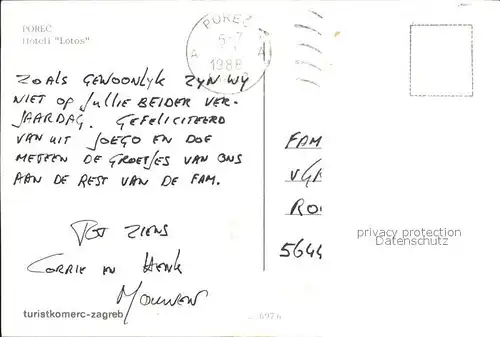 POREČ
Hoteli "Lotos"
POREČ
5-7
A A
1988
ZOALS GEWOONLYK ZYN WY
NIET OP JULLIE BEIDER VER-
JAARDAG. GEFELICITEERD
VAN UIT JOEGO EN DOE
METEEN DE GROETJES VAN ONS
AAN DE REST VAN DE FAM.
TOT ZIENS
CORRIE EN HENK
FAM
VGR
RO
5644
privacy protection
Datenschutz
turistkomerc-zagreb
697.6